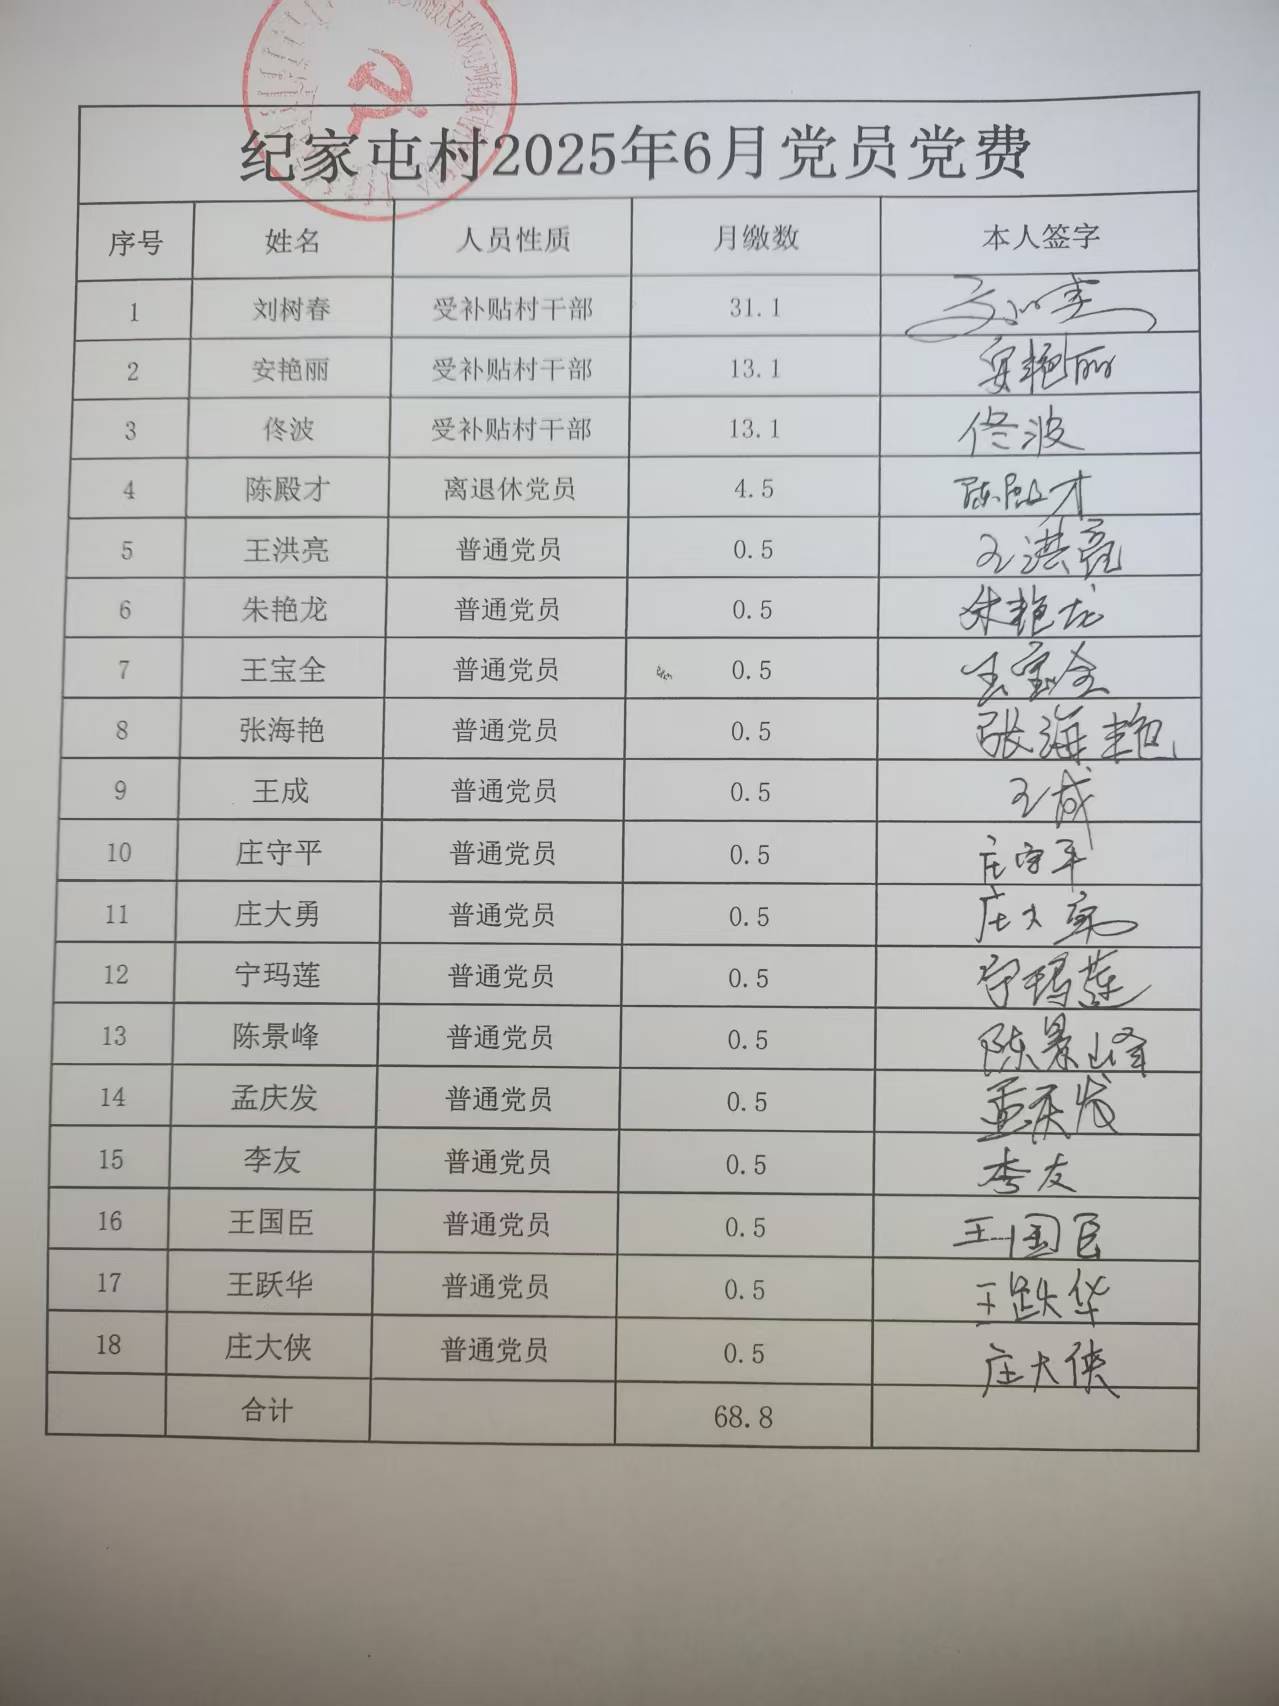 纪家屯村2025年6月党员党费
序号 姓名 人员性质 月缴数 本人签字
1 刘树春 受补贴村干部 31.1
2 安艳丽 受补贴村干部 13.1 安艳丽
3 佟波 受补贴村干部 13.1 佟波
4 陈殿才 离退休党员 4.5 陈殿才
5 王洪亮 普通党员 0.5 王洪亮
6 朱艳龙 普通党员 0.5 朱艳龙
7 王宝全 普通党员 0.5 王宝全
8 张海艳 普通党员 0.5 张海艳
9 王成 普通党员 0.5 王成
10 庄守平 普通党员 0.5 庄守平
11 庄大勇 普通党员 0.5 庄大勇
12 宁玛莲 普通党员 0.5 宁玛莲
13 陈景峰 普通党员 0.5 陈景峰
14 孟庆发 普通党员 0.5 孟庆发
15 李友 普通党员 0.5 李友
16 王国臣 普通党员 0.5 王国臣
17 王跃华 普通党员 0.5 王跃华
18 庄大侠 普通党员 0.5 庄大侠
合计 68.8